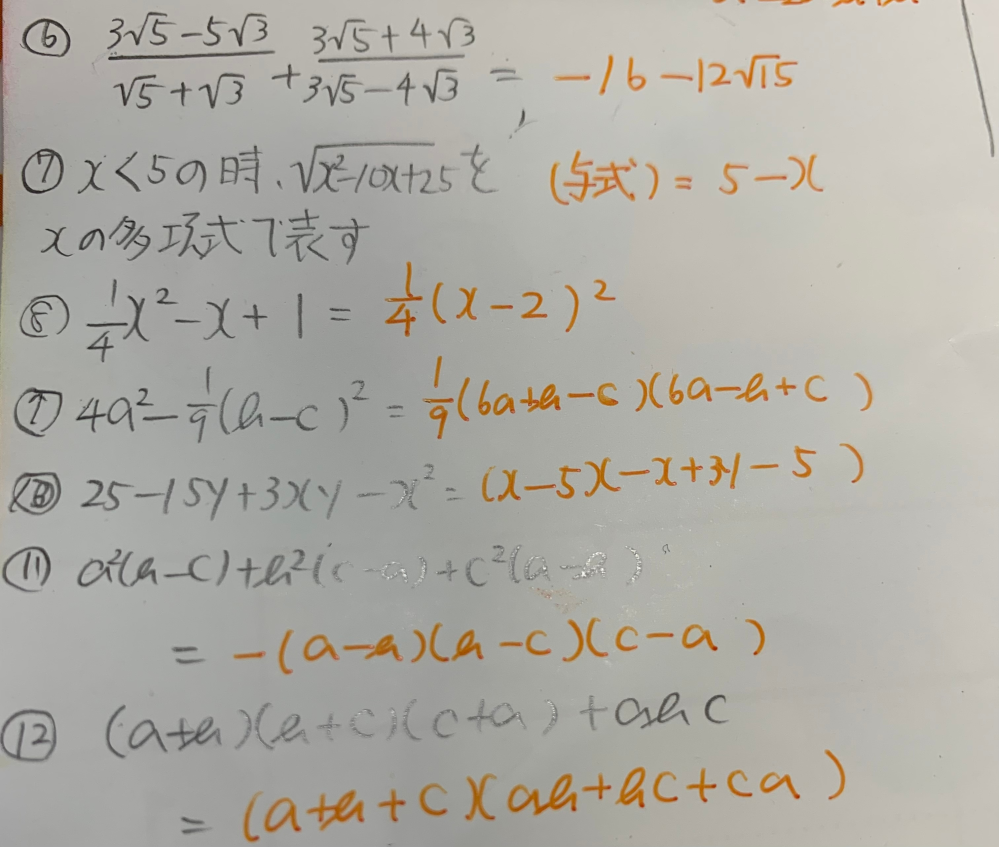 ⑥ (3√5-5√3)/(√5+√3) + (3√5+4√3)/(3√5-4√3) = -16-12√15
⑦ x<5の時、√(x²-10x+25)を (与式)= 5-x
xの多項式で表す
⑧ 1/4x²-x+1 = 1/4(x-2)²
⑨ 4a²-1/9(b-c)² = 1/9(6a+b-c)(6a-b+c)
⑩ 25-15y+3xy-x² = (x-5)(-x+3y-5)
⑪ a²(b-c)+b²(c-a)+c²(a-b)
= -(a-b)(b-c)(c-a)
⑫ (a+b)(b+c)(c+a)+abc
= (a+b+c)(ab+bc+ca)